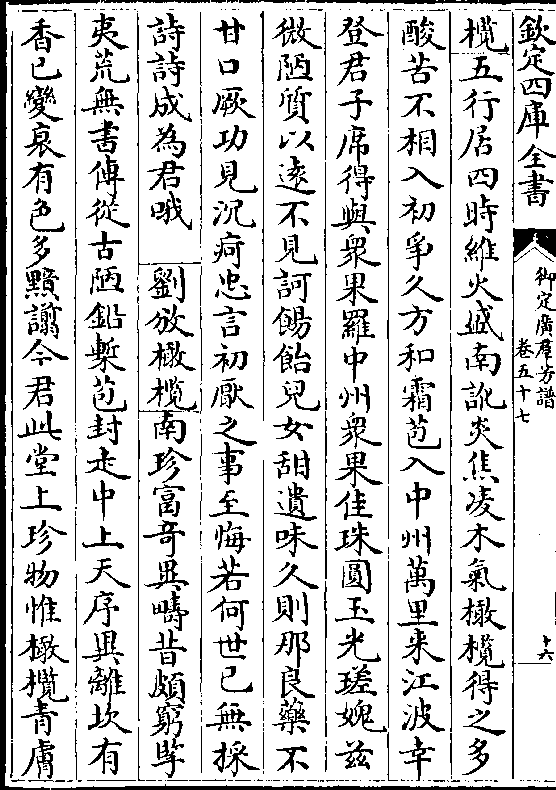 欽定四庫全書
御定廣羣芳譜
卷五十七
十六
欖五行居四時維火盛南訛炎焦凌木氣橄欖得之多
酸苦不相入初爭久方和霜苞入中州萬里來江波幸
登君子席得與衆果羅中州衆果佳珠圓玉光瑳媿兹
微陋質以遠不見訶餳飴兒女甜遺味久則那良藥不
甘口厥功見沉痾忠言初厭之事至悔若何世已無採
詩詩成為君哦 劉攽橄欖南珍富奇異疇昔頗窮掔
夷荒無書傳從古陋鉛槧苞封走中上天序異離坎有
香已變裛有色多黷
今君此堂上珍物惟橄欖青膚